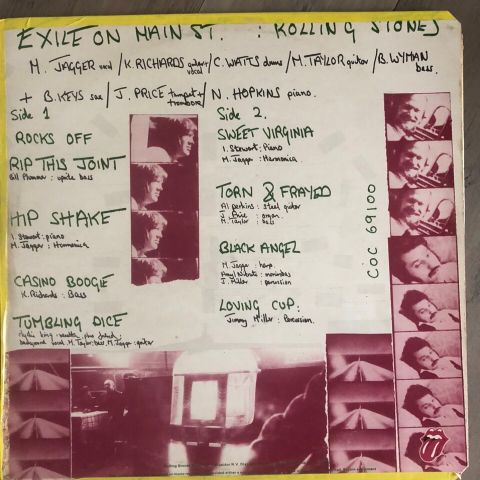 EXILE ON MAIN ST. : ROLLING STONES
M. JAGGER vocal / K. RICHARDS guitar + vocal / C. WATTS drums / M. TAYLOR guitar / B. WYMAN bass.
+ B. KEYS sax / J. PRICE trumpet + trombone / N. HOPKINS piano.
Side 1
ROCKS OFF
RIP THIS JOINT
Bill Plummer : uprite bass
HIP SHAKE
I. Stewart : piano
M. Jagger : Harmonica
CASINO BOOGIE
K. Richards : Bass
TUMBLING DICE
background vocal. M. Taylor: bass. M. Jagger : guitar
Side 2.
SWEET VIRGINIA
I. Stewart : Piano
M. Jagger : Harmonica
TORN & FRAYED
Al Perkins : steel guitar
J. Price : organ.
M. Taylor : bass
BLACK ANGEL
M. Jagger : harp
: marimbas
J. Miller : percussion
LOVING CUP.
Jimmy Miller : Percussion.
COC 69100